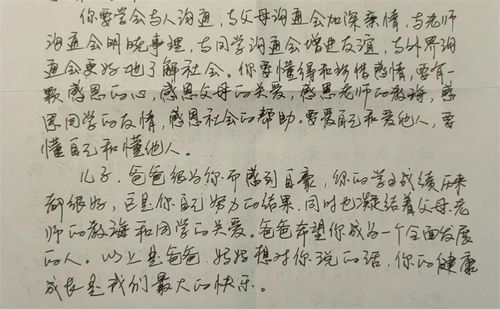 你要学会与人沟通，与父母沟通会加深亲情，与老师
沟通会明晓事理，与同学沟通会增进友谊，与外界沟
通会更好地了解社会。你要懂得和珍惜感情，要有一
颗感恩的心，感恩父母的关爱，感恩老师的教诲，感
恩同学的友情，感恩社会的帮助。要爱自己和爱他人，要
懂自己和懂他人。
儿子，爸爸很为你而感到自豪，你的学习成绩历来
都很好，这是你自己努力的结果，同时也凝结着父母、老
师的教诲和同学的关爱。爸爸希望你成为一个全面发展
的人。以上是爸爸、妈妈想对你说的话，你的健康
成长是我们最大的快乐。